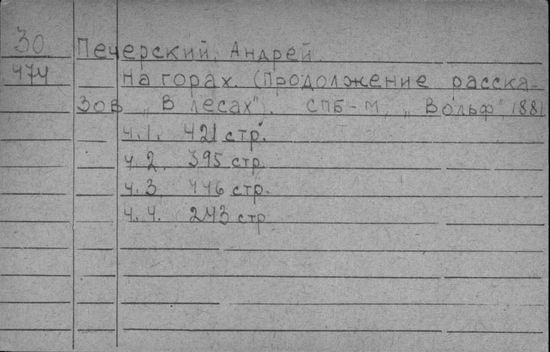 30 Печерский, Андрей.
474 На горах. (Продолжение расска-
зов „В лесах"). СПБ-М, „Вольф" 1881
ч.1. 421 стр.
ч.2. 395 стр.
ч.3 446 стр.
ч.4. 243 стр